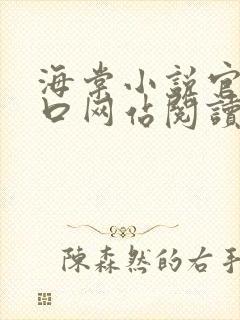 海棠小説官
口网佔閱讀
陳森然的右手